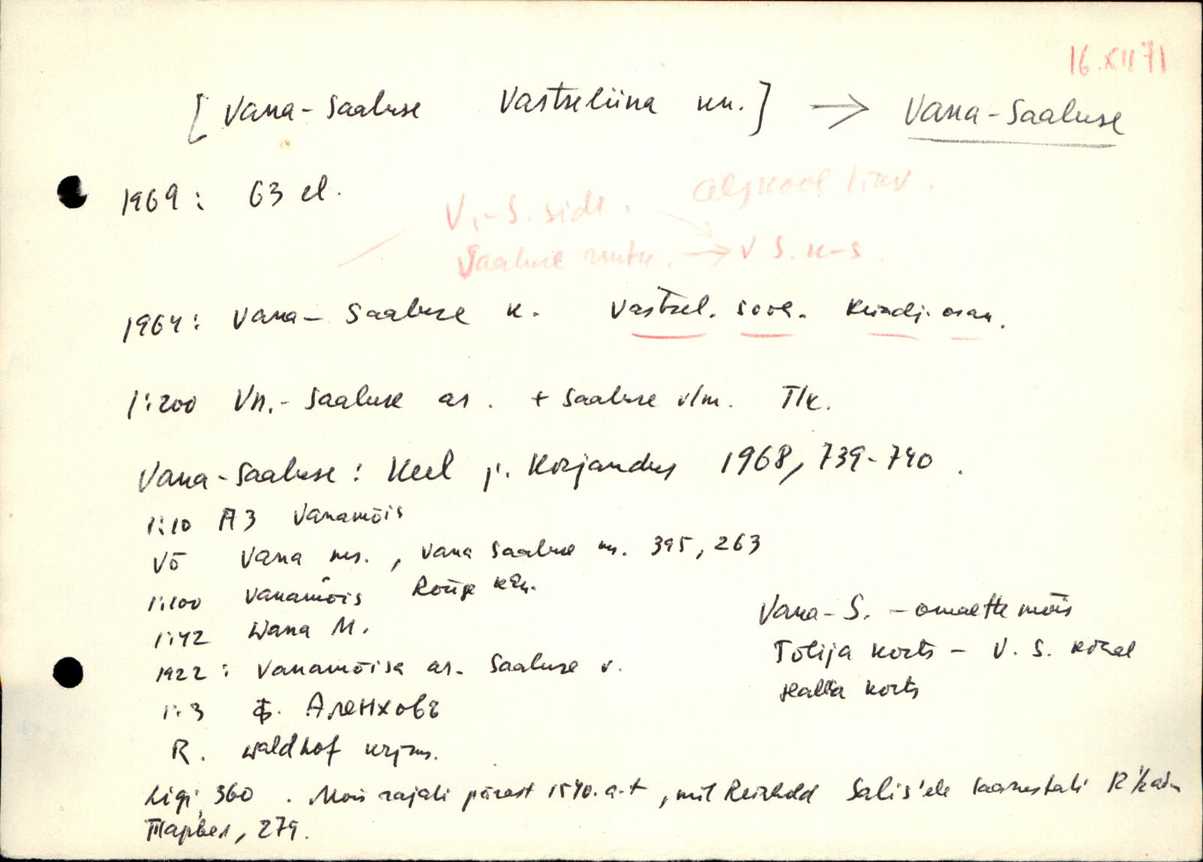 16.XII 71
[Vana-Saaluse Vastseliina kn.] → Vana-Saaluse
1969: 63 el.
V.-S. sidk. algkool
Saaluse → V S. k-s.
1964: Vana-Saaluse k. Vastsel. osak.
1:200 Vn.-Saaluse as. + Saaluse v/m. T/k.
Vana-Saaluse: Keel j. Kirjandus 1968, 739-740.
1:10 A3 Vanamõis
VÕ Vana ms., Vana Saaluse m. 395, 263
1:100 Vanamõis Rõuge khk.
1:42 Wana M.
Vana-S. – omaette mõis
Tolija korts – V. S. kõrval
korts
1922: Vanamõisa as. Saaluse v.
1:3 Ф. Аленховъ
R. Waldhof krjms.
Ligi 360. Mõis rajati pärast 1540. a-t, mil Reinhold Salis'ele
Тарвел, 279.